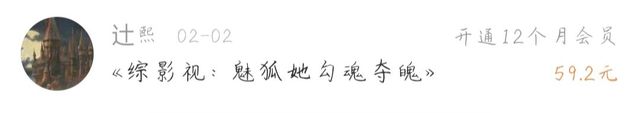 辻熙 02-02 开通12个月会员
《综影视：魅狐她勾魂夺魄》 59.2元